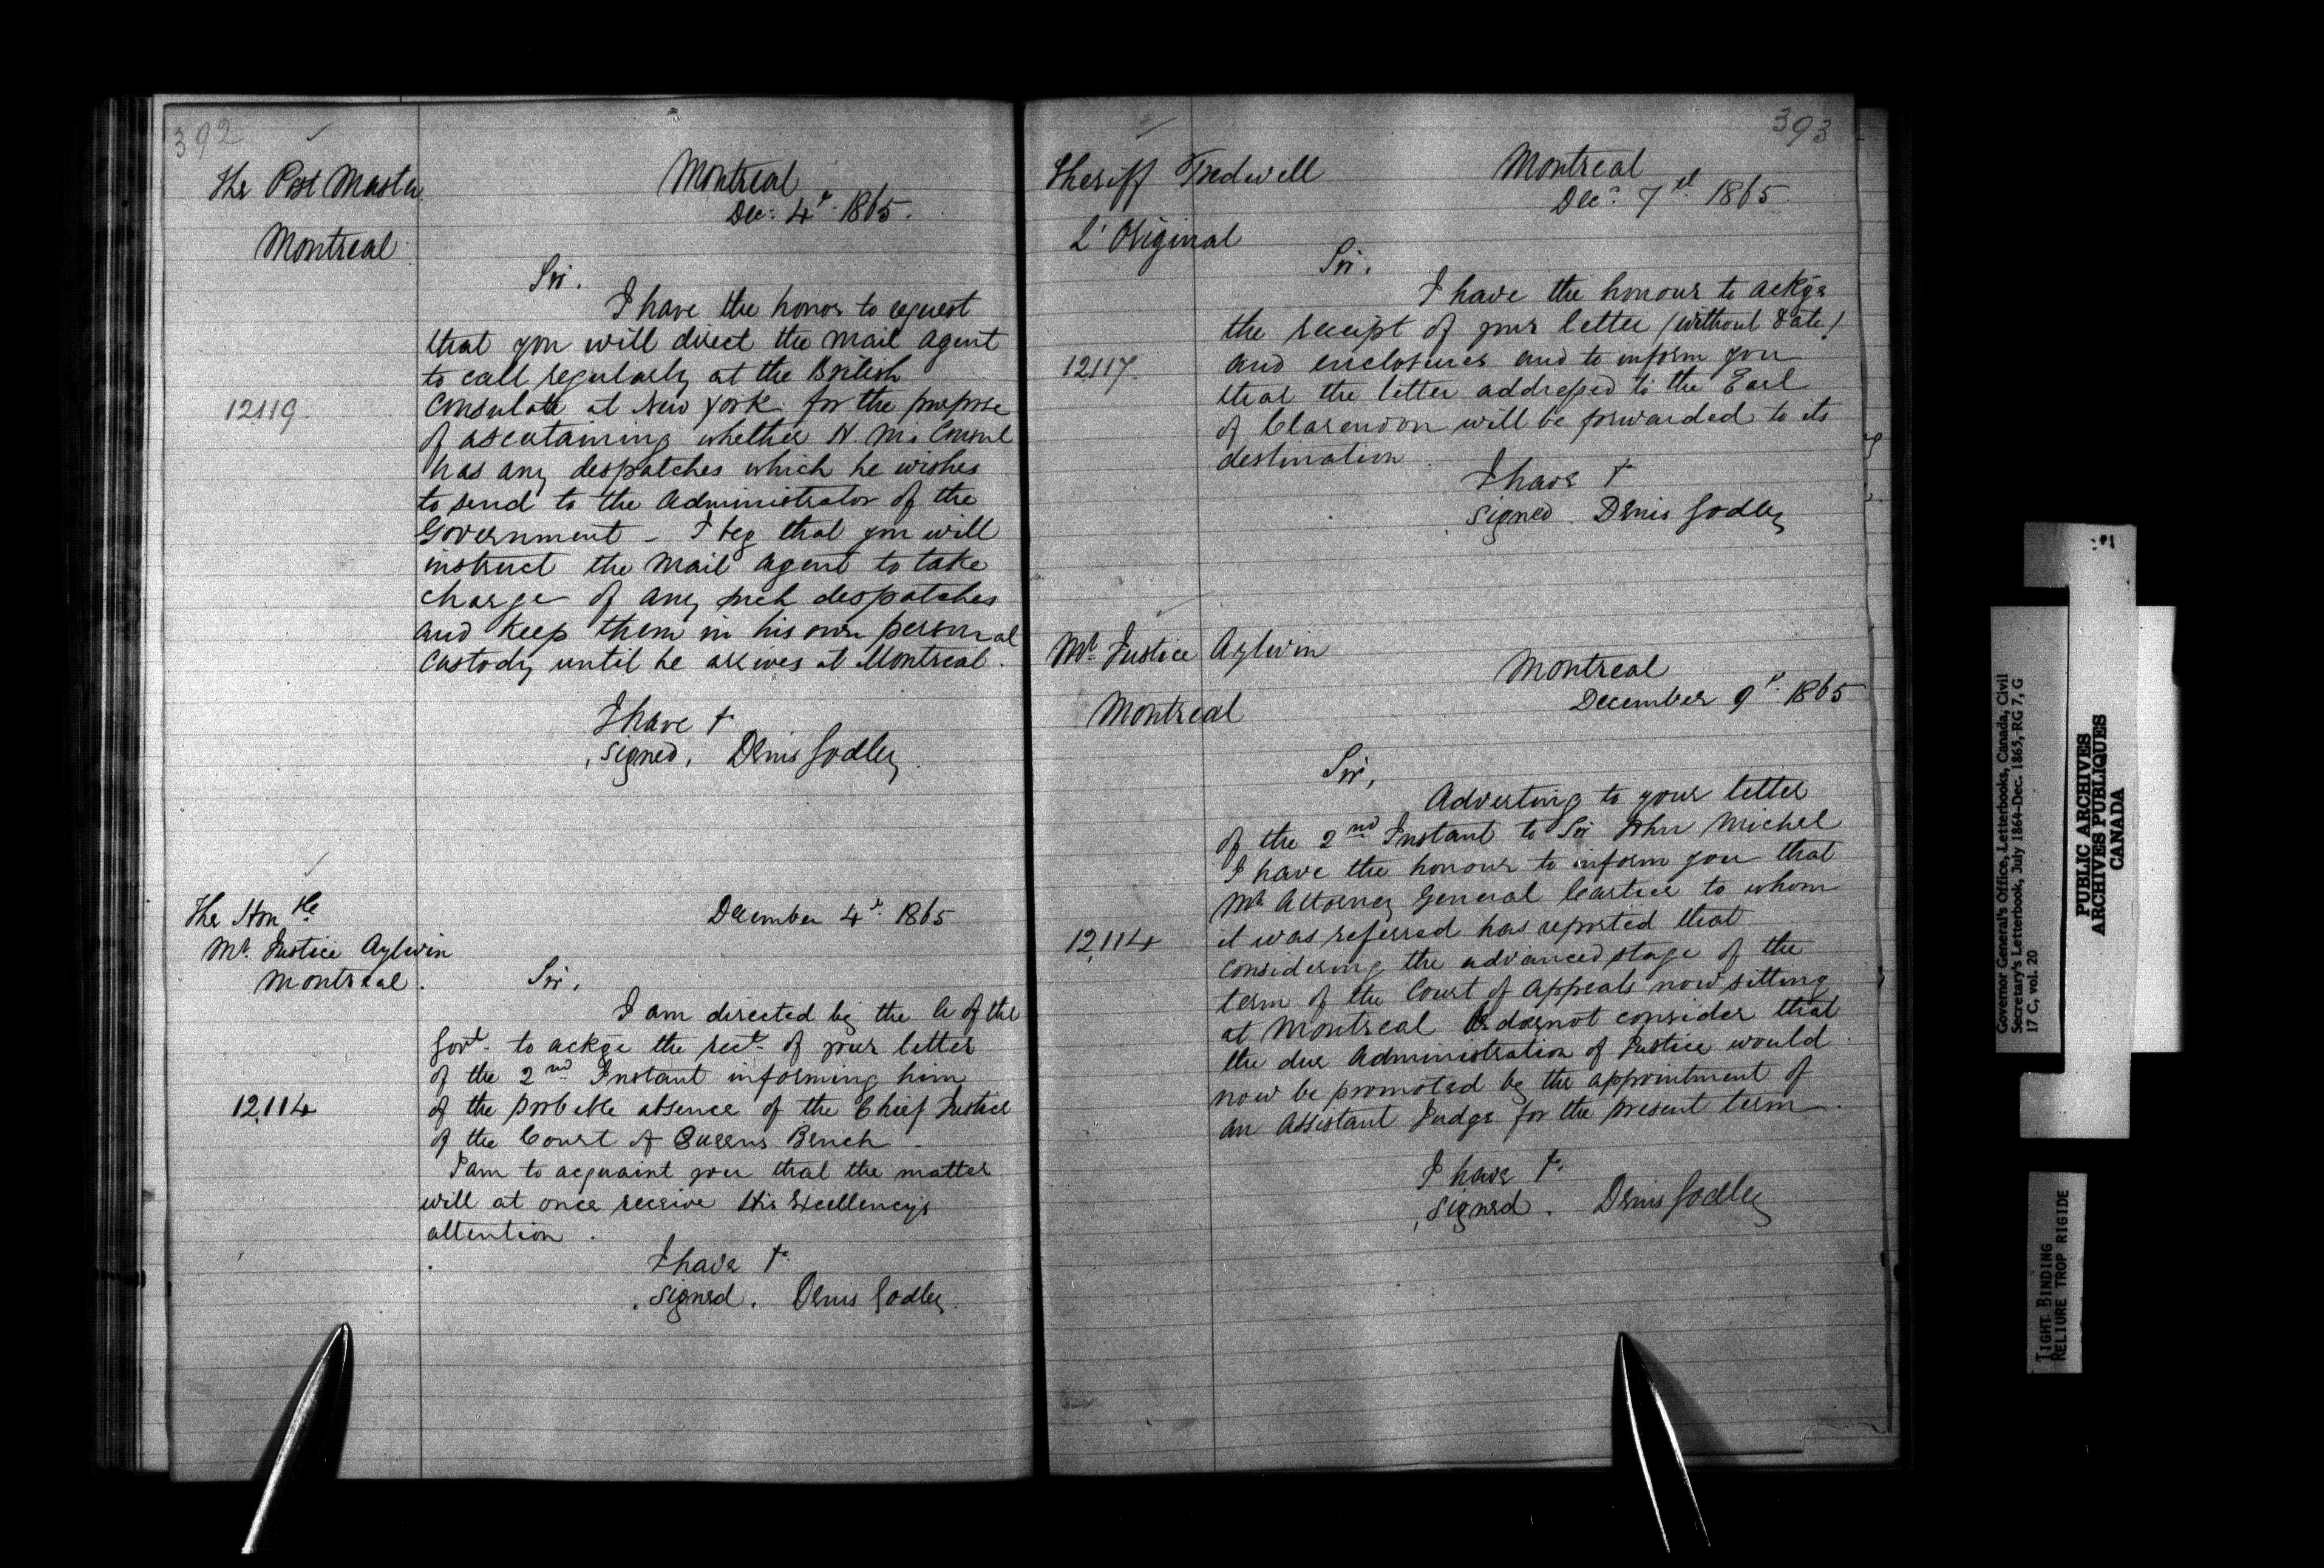 392
The Post Master
Montreal
Montreal
Dec: 4th 1865.
Sir.
I have the honor to request
that you will direct the mail agent
to call regularly at the British
12119.
Consulate at New York for the purpose
of ascertaining whether H. M's Consul
has any despatches which he wishes
to send to the Administrator of the
Government - I beg that you will
instruct the mail agent to take
charge of any such despatches
and keep them in his own personal
custody until he arrives at Montreal.
I have &
signed, Denis Godley.
The Honble
Mr. Justice Aylwin
Montreal.
December 4th 1865
Sir,
I am directed by the A of the
Govt. to ackge the rect. of your letter
of the 2nd Instant informing him
12,114
of the probable absence of the Chief Justice
of the Court of Queens Bench -
I am to acquaint you that the matter
will at once receive His Excellency's
attention.
I have &.
signed. Denis Godley.
393
Sheriff Tredwell
L'Original
Montreal
Decr. 7th 1865.
Sir.
I have the honour to ackge
the receipt of your letter (without date)
12117.
and enclosures and to inform you
that the letter addressed to the Earl
of Clarendon will be forwarded to its
destination.
I have &
signed. Denis Godley
Mr. Justice Aylwin
Montreal
Montreal
December 9th. 1865
Sir,
Adverting to your letter
of the 2nd Instant to Sir John Michel
I have the honour to inform you that
Mr Attorney General Cartier to whom
12,114
it was referred has reported that
considering the advanced stage of the
term of the Court of Appeals now sitting
at Montreal he does not consider that
the due Administration of Justice would
now be promoted by the appointment of
an Assistant Judge for the present term.
I have &.
signed. Denis Godley
Governor General's Office, Letterbooks, Canada, Civil
Secretary's Letterbook, July 1864-Dec. 1865, RG 7, G
17 C, vol. 20
PUBLIC ARCHIVES
ARCHIVES PUBLIQUES
CANADA
TIGHT BINDING
RELIURE TROP RIGIDE